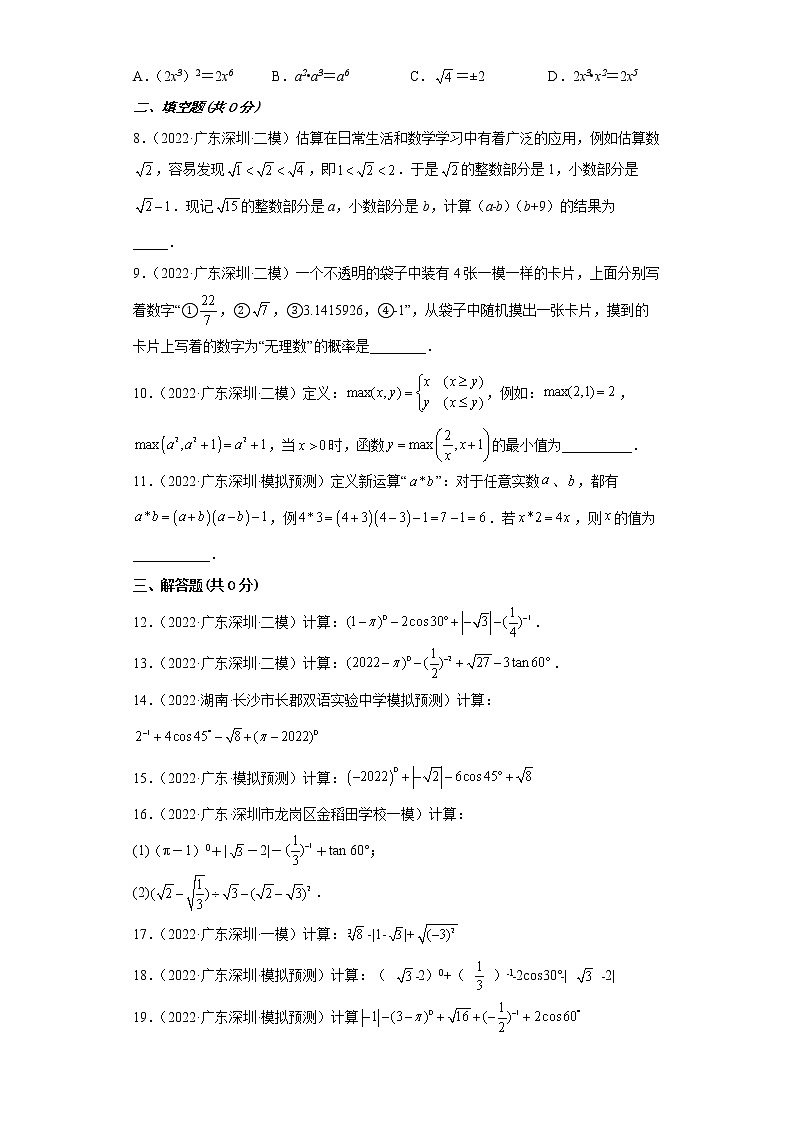 A.(2x³)²=2x⁶ B.a²•a³=a⁶ C.√4=±2 D.2x³•x²=2x⁵
二、填空题(共0分)
8.(2022·广东深圳·二模)估算在日常生活和数学学习中有着广泛的应用,例如估算数
√2,容易发现√1<√2<√4,即1<√2<2.于是√2的整数部分是1,小数部分是
√2−1.现记√15的整数部分是a,小数部分是b,计算(a-b)(b+9)的结果为
_____.
9.(2022·广东深圳·二模)一个不透明的袋子中装有4张一模一样的卡片,上面分别写
着数字“①22/7,②√7,③3.1415926,④-1”,从袋子中随机摸出一张卡片,摸到的
卡片上写着的数字为“无理数”的概率是________.
10.(2022·广东深圳·二模)定义:max(x,y)={x (x≥y) y (x≤y),例如:max(2,1)=2,
max(a²,a²+1)=a²+1,当x>0时,函数y=max(2/x,x+1)的最小值为__________.
11.(2022·广东深圳·模拟预测)定义新运算“a*b”:对于任意实数a、b,都有
a*b=(a+b)(a−b)−1,例4*3=(4+3)(4−3)−1=7−1=6.若x*2=4x,则x的值为
___________.
三、解答题(共0分)
12.(2022·广东深圳·二模)计算:(1−π)⁰−2cos30°+|−√3|−(1/4)⁻¹.
13.(2022·广东深圳·二模)计算:(2022−π)⁰−(1/2)⁻²+√27−3tan60°.
14.(2022·湖南·长沙市长郡双语实验中学模拟预测)计算:
2⁻¹+4cos45°−√8+(π−2022)⁰
15.(2022·广东·模拟预测)计算:(−2022)⁰+|−√2|−6cos45°+√8
16.(2022·广东·深圳市龙岗区金稻田学校一模)计算:
(1)(π-1)0+|√3-2|-(1/3)⁻¹+tan 60°;
(2)(√2−√(1/3))÷√3−(√2−√3)².
17.(2022·广东深圳·一模)计算:∛8-|1-√3|+√(−3)²
18.(2022·广东深圳·模拟预测)计算:(√3-2)0+(1/3)-1-2cos30°-|√3-2|
19.(2022·广东深圳·模拟预测)计算|−1|−(3−π)⁰+√16+(−1/2)⁻¹+2cos60°